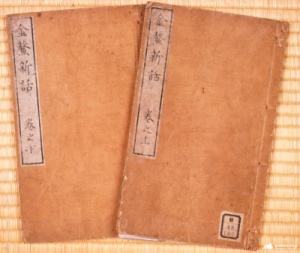 金鰲新話
卷之下
金鰲新話
卷之上